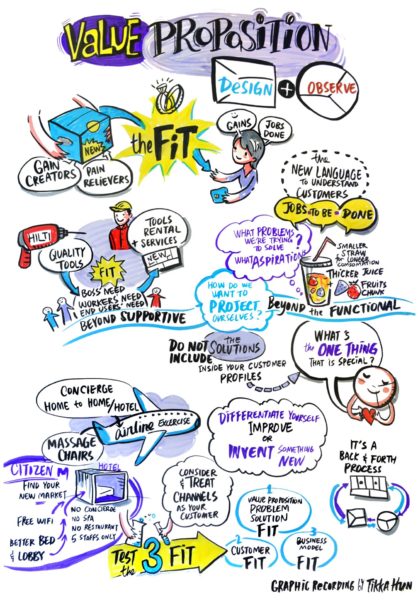 VALUE PROPOSITION
DESIGN + OBSERVE
NEWS
the FIT
GAIN
CREATORS
PAIN
RELIEVERS
GAINS
JOBS
DONE
the
NEW LANGUAGE
TO UNDERSTAND
CUSTOMERS
JOBS TO BE DONE
HILTI
QUALITY
TOOLS
TOOLS
RENTAL
+ SERVICES
NEW
FIT
BOSS NEED
WORKERS NEED
END USERS' NEED
BEYOND SUPPORTIVE
WHAT PROBLEMS
WE'RE TRYING
TO SOLVE
WHAT ASPIRATIONS?
HOW DO WE
WANT TO
PROJECT
OURSELVES?
SMALLER
STRAW
FOR LONGER
CONSUMPTION
THICKER JUICE
FRUITS
CHUNK
BEYOND the FUNCTIONAL
DO NOT
INCLUDE
THE
SOLUTIONS
INSIDE YOUR CUSTOMER
PROFILES
WHAT'S
the ONE THING
THAT IS SPECIAL?
CONCIERGE
HOME TO HOME/HOTEL
airline EXERCISE
MASSAGE
CHAIRS
DIFFERENTIATE YOURSELF
IMPROVE
OR
INVENT SOMETHING
NEW
IT'S A
BACK & FORTH
PROCESS
CITIZEN M
HOTEL
FIND YOUR
NEW MARKET
FREE WIFI
BETTER BED
& LOBBY
NO CONCIERGE
NO SPA
NO RESTAURANT
5 STAFFS ONLY
CONSIDER
& TREAT
CHANNELS
AS YOUR
CUSTOMER
TEST
the 3 FIT
VALUE PROPOSITION
PROBLEM
SOLUTION
FIT
CUSTOMER
FIT
BUSINESS
MODEL
FIT
GRAPHIC RECORDING by TIKKA HUN